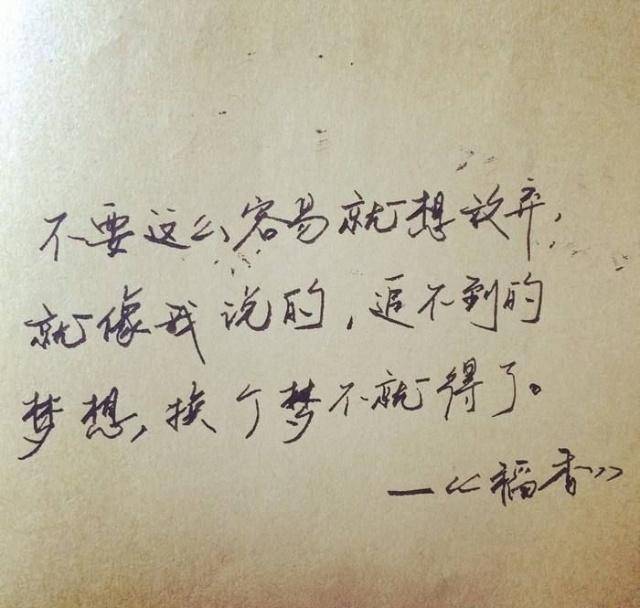 不要这么容易就想放弃，
就像我说的，追不到的
梦想，换个梦不就得了。
—《稻香》